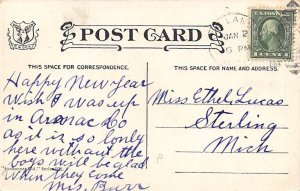 POST CARD
THIS SPACE FOR CORRESPONDENCE.
THIS SPACE FOR NAME AND ADDRESS.
JAN 2
PM
1 CENT 1
Happy New year
wish I was up
in Arenac Co
as it is so lonly
here without the
boys will be glad
when they come
Mrs. Burr
Miss Ethel Lucas
Sterling
Mich